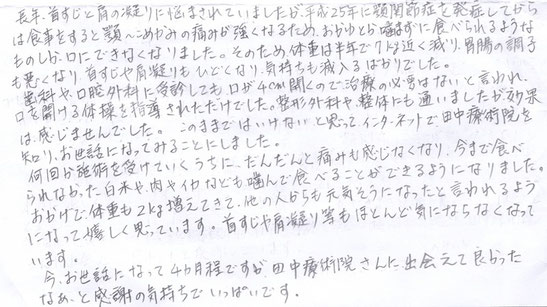 長年、首すじと肩の凝りに悩まされていましたが、平成25年に顎関節症を発症してから
は食事をすると顎へこめかみの痛みが強くなるため、おかゆとか噛まずに食べられるような
ものしか口にできなくなりました。そのため体重は半年で7kg近く減り、胃腸の調子
も悪くなり、首すじや肩凝りもひどくなり、気持ちも滅入るばかりでした。
歯科や口腔外科に受診しても口が4cm開くので治療の必要はないと言われ、
口を開ける体操を指導されただけでした。整形外科や、整体にも通いましたが効果
は感じませんでした。このままではいけないと思ってインターネットで田中療術院を
知り、お世話になってみることにしました。
何回か施術を受けていくうちに、だんだんと痛みも感じなくなり、今まで食べ
られなかった白米や、肉やイカなども噛んで食べることができるようになりました。
おかげで、体重も2kg増えてきて、他の人からも元気そうになったと言われるよう
になって嬉しく思っています。首すじや肩凝り等もほとんど気にならなくなって
います。
今、お世話になって4ヵ月程ですが田中療術院さんに出会えて良かった
なぁ、と感謝の気持ちでいっぱいです。